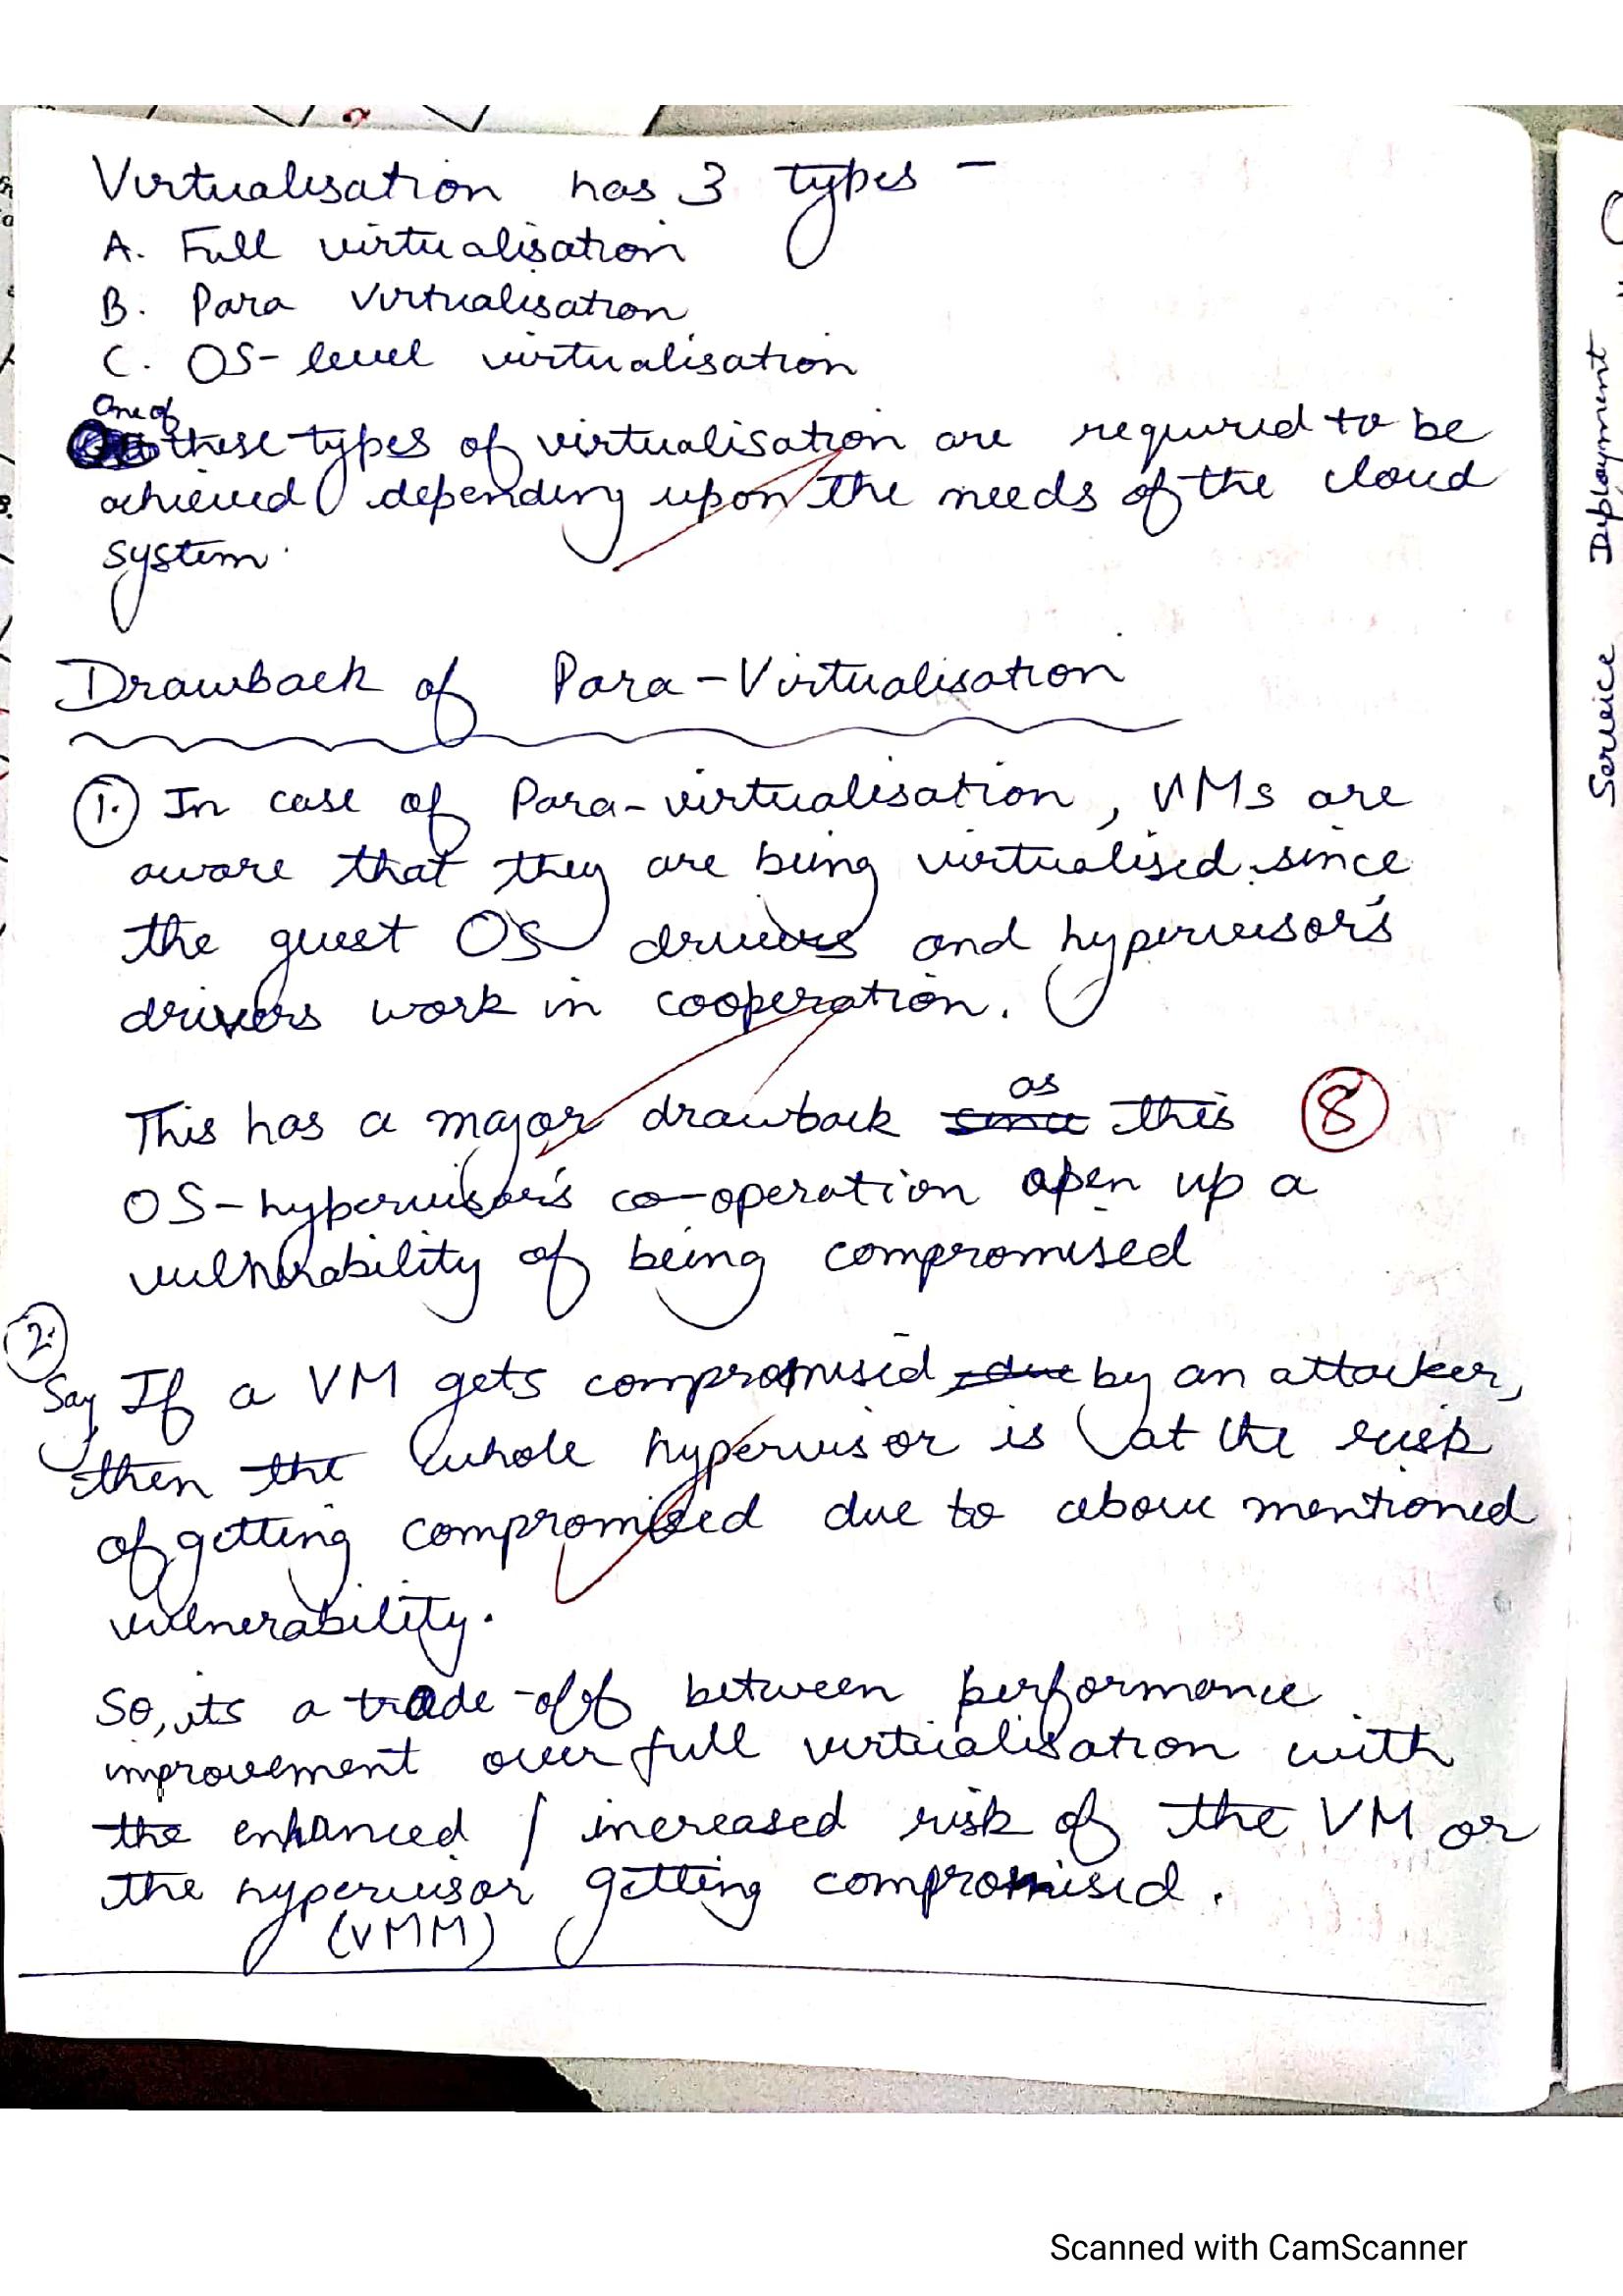 Virtualisation has 3 types -
A. Full virtualisation
B. Para Virtualisation
C. OS-level virtualisation
One of
these types of virtualisation are required to be
achieved depending upon the needs of the cloud
system.
Drawback of Para-Virtualisation
1. In case of Para-virtualisation, VMs are
aware that they are being virtualised since
the guest OS drivers and hypervisor's
drivers work in cooperation.
This has a major drawback as this
8
OS-hypervisor's co-operation open up a
vulnerability of being compromised
2.
Say, If a VM gets compromised by an attacker,
then the whole hypervisor is at the risk
of getting compromised due to above mentioned
vulnerability.
So, its a trade-off between performance
improvement over full virtualisation with
the enhanced / increased risk of the VM or
the hypervisor getting compromised.
(VMM)
Service Deployment
Scanned with CamScanner